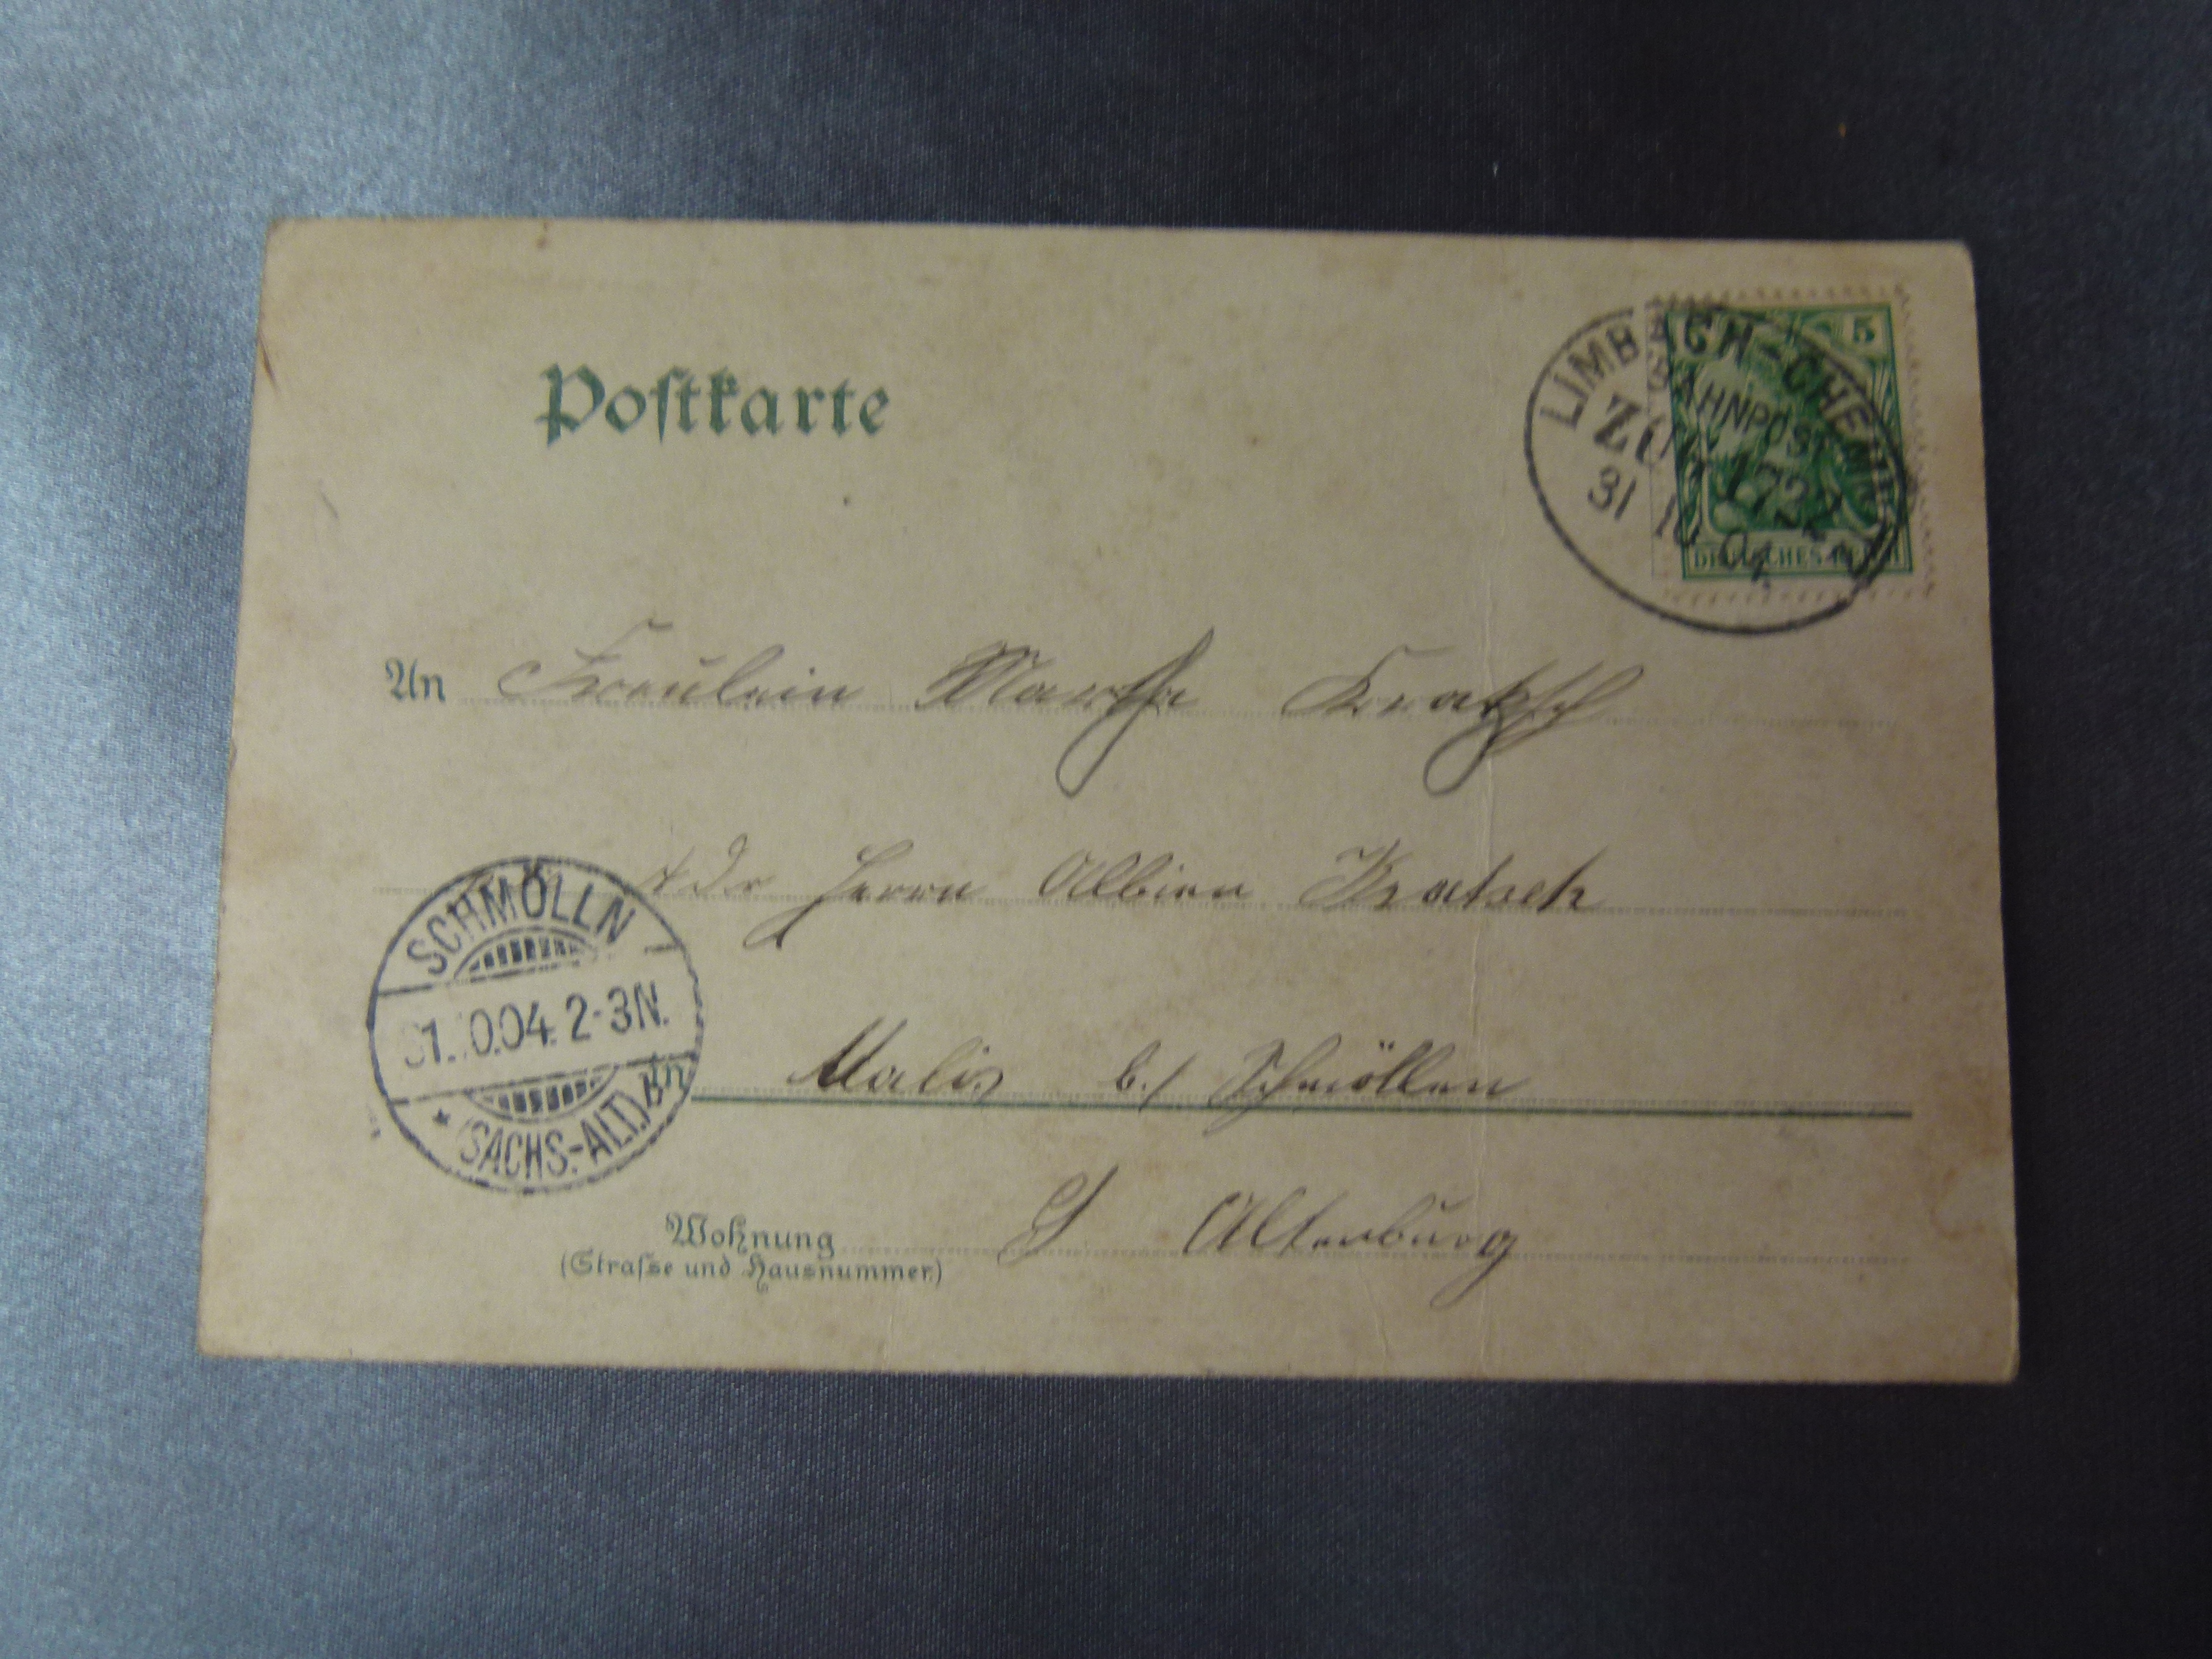 Postkarte
5
LIMBACH-CHEMN
BAHNPOST
ZUG 1722
31 10 04
DEUTSCHES REICH
An Fräulein Martha Kratzsch
Adr Herrn Albien Kratsch
SCHMÖLLN
31.10.04. 2-3N.
* (SACHS.-ALT.)
in b./ Schmölln
S Altenburg
Wohnung
(Strasse und Hausnummer)